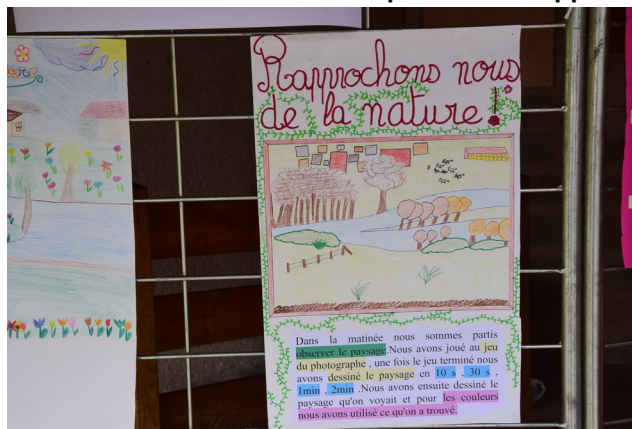 Rapprochons nous
de la nature !
Dans la matinée nous sommes partis
observer le paysage.Nous avons joué au jeu
du photographe , une fois le jeu terminé nous
avons dessiné le paysage en 10 s , 30 s ,
1min , 2min .Nous avons ensuite dessiné le
paysage qu'on voyait et pour les couleurs
nous avons utilisé ce qu'on a trouvé.